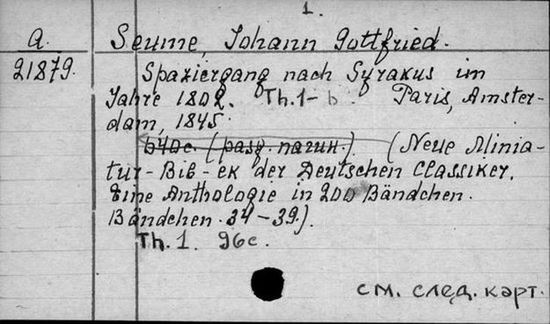 1.
A.
21879.
Seume, Johann Gottfried.
Spaziergang nach Syrakus im
Jahre 1802. Th. 1-6. Paris, Amster-
dam, 1845.
640c. (разд. пагин.) (Neue Minia-
tur-Bib-ek der Deutschen Classiker.
Eine Anthologie in 200 Bändchen.
Bändchen. 34-39.).
Th. 1. 96c.
см. след. карт.